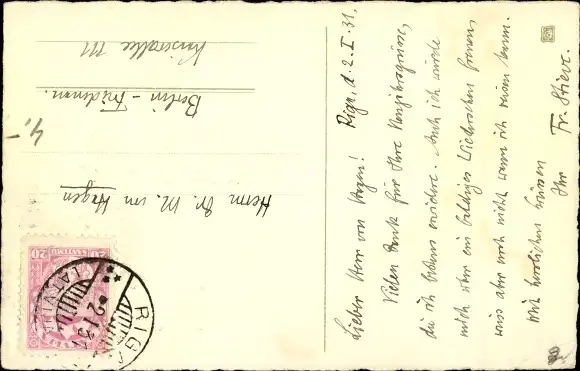 Riga, d. 2. I. 31.
Lieber Herr von Hagen!
Vielen Dank für Ihre Neujahrsgrüsse,
die ich bestens erwidere. Auch ich würde
mich über ein baldiges Wiedersehen freuen,
weiss aber noch nicht wann ich reisen kann.
Mit herzlichen Grüssen
Ihr Fr. Stieve.
Herrn Dr. M. von Hagen
Berlin - Friedenau.
4,-
20 SANTIMU 20
LATVIJA
RIGA
2 1 31